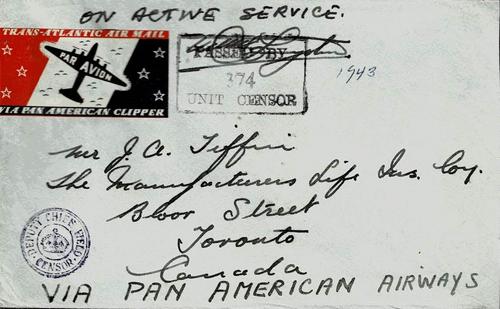 ON ACTIVE SERVICE.
TRANS-ATLANTIC AIR MAIL
PAR AVION
VIA PAN AMERICAN CLIPPER
PASSED BY
374
UNIT CENSOR
1943
Mr J. A. Tiffin
The Manufacturers Life Ins. Coy.
Bloor Street
Toronto
Canada
DEPUTY CHIEF FIELD CENSOR
VIA PAN AMERICAN AIRWAYS